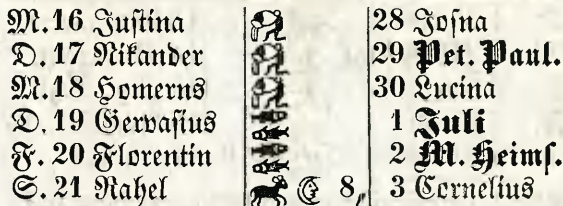 M. 16 Juſtina 28 Joſna
D. 17 Nikander 29 Pet. Paul.
M. 18 Homerns 30 Lucina
D. 19 Gervaſius 1 Juli
F. 20 Florentin 2 M. Heimſ.
S. 21 Rahel 8, 3 Cornelius